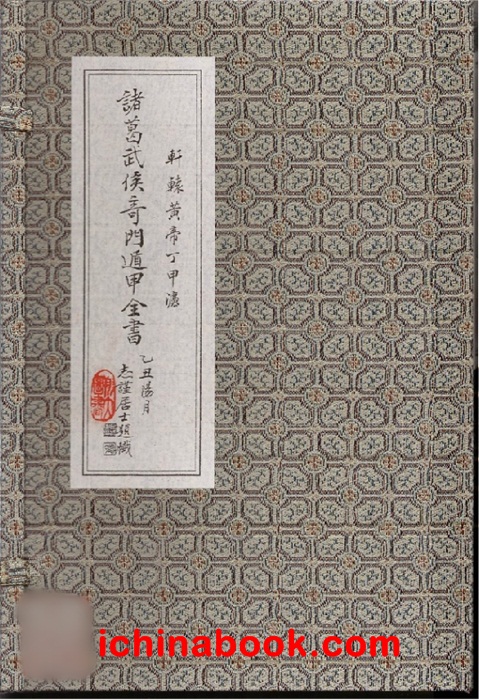 軒轅黃帝丁甲瀘
諸葛武侯奇門遁甲全書
乙丑陽月
志謹居士題籤
ichinabook.com